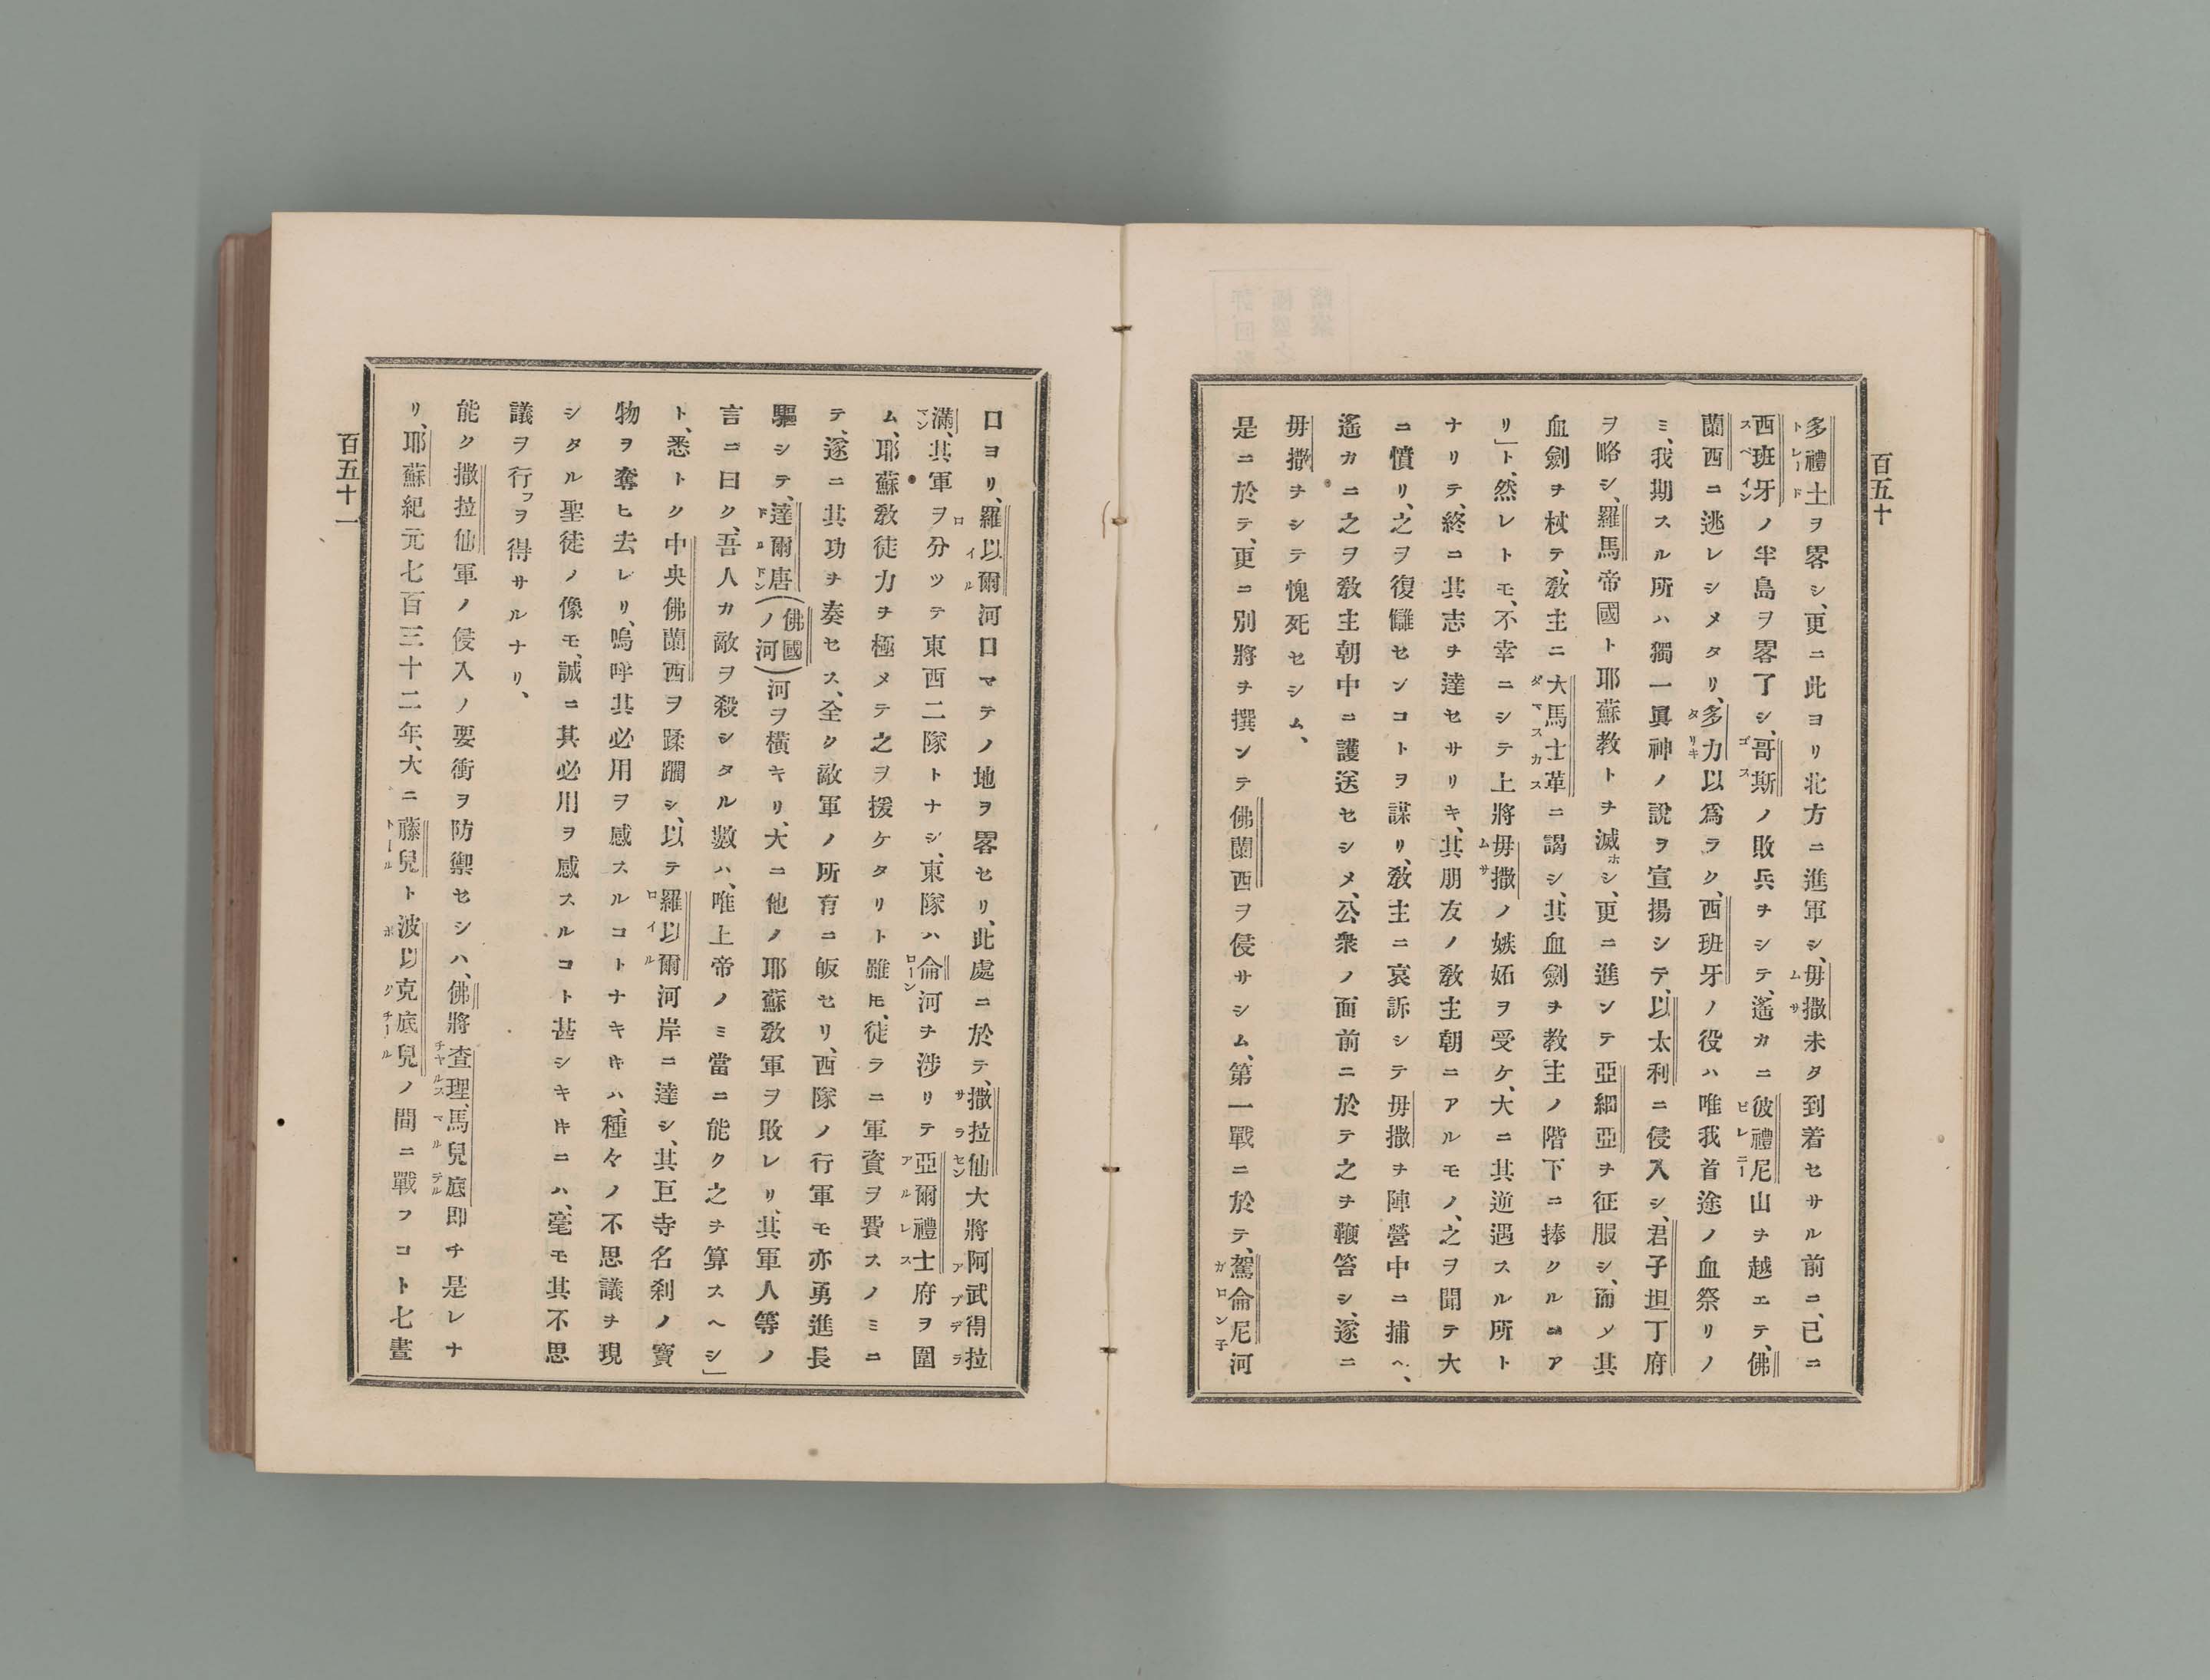 百五十
多禮土ヲ畧シ、更ニ此ヨリ北方ニ進軍シ、毋撒未タ到着セサル前ニ、已ニ
西班牙ノ半島ヲ畧了シ、哥斯ノ敗兵ヲシテ、遙カニ彼禮尼山ヲ越エテ、佛
蘭西ニ逃レシメタリ、多力以爲ラク、西班牙ノ役ハ唯我首途ノ血祭リノ
ミ、我期スル所ハ獨一眞神ノ說ヲ宣揚シテ、以太利ニ侵入シ、君子坦丁府
ヲ略シ、羅馬帝國ト耶蘇教トヲ滅ホシ、更ニ進ンテ亞細亞ヲ征服シ、而ソ其
血劍ヲ杖テ、敎主ニ大馬士革ニ謁シ、其血劍ヲ敎主ノ階下ニ捧クルニア
リ」ト、然レトモ、不幸ニシテ上將毋撒ノ嫉妬ヲ受ケ、大ニ其逆遇スル所ト
ナリテ、終ニ其志ヲ達セサリキ、其朋友ノ敎主朝ニアルモノ、之ヲ聞テ大
ニ憤リ、之ヲ復讎センコトヲ謀リ、敎主ニ哀訴シテ毋撒ヲ陣營中ニ捕ヘ、
遙カニ之ヲ敎主朝中ニ護送セシメ、公衆ノ面前ニ於テ之ヲ鞭笞シ、遂ニ
毋撒ヲシテ愧死セシム、
是ニ於テ、更ニ別將ヲ撰ンテ佛蘭西ヲ侵サシム、第一戰ニ於テ、駕侖尼河
口ヨリ、羅以爾河口マテノ地ヲ畧セリ、此處ニ於テ、撒拉仙大將阿武得拉
滿、其軍ヲ分ツテ東西二隊トナシ、東隊ハ侖河ヲ涉リテ亞爾禮士府ヲ圍
ム、耶蘇敎徒力ヲ極メテ之ヲ援ケタリト雖モ、徒ラニ軍資ヲ費スノミニ
テ、遂ニ其功ヲ奏セス、全ク敵軍ノ所有ニ皈セリ、西隊ノ行軍モ亦勇進長
驅シテ、達爾唐(佛國ノ河)河ヲ橫キリ、大ニ他ノ耶蘇敎軍ヲ敗レリ、其軍人等ノ
言ニ曰ク、吾人カ敵ヲ殺シタル數ハ、唯上帝ノミ當ニ能ク之ヲ算スヘシ」
ト、悉トク中央佛蘭西ヲ蹂躙シ、以テ羅以爾河岸ニ達シ、其巨寺名刹ノ寶
物ヲ奪ヒ去レリ、嗚呼其必用ヲ感スルコトナキキハ、種々ノ不思議ヲ現
シタル聖徒ノ像モ、誠ニ其必用ヲ感スルコト甚シキキニハ、毫モ其不思
議ヲ行フヲ得サルナリ、
能ク撒拉仙軍ノ侵入ノ要衝ヲ防禦セシハ、佛將査理、馬兒底即チ是レナ
リ、耶蘇紀元七百三十二年、大ニ藤兒ト波以克底兒ノ間ニ戰フコト七晝
百五十一